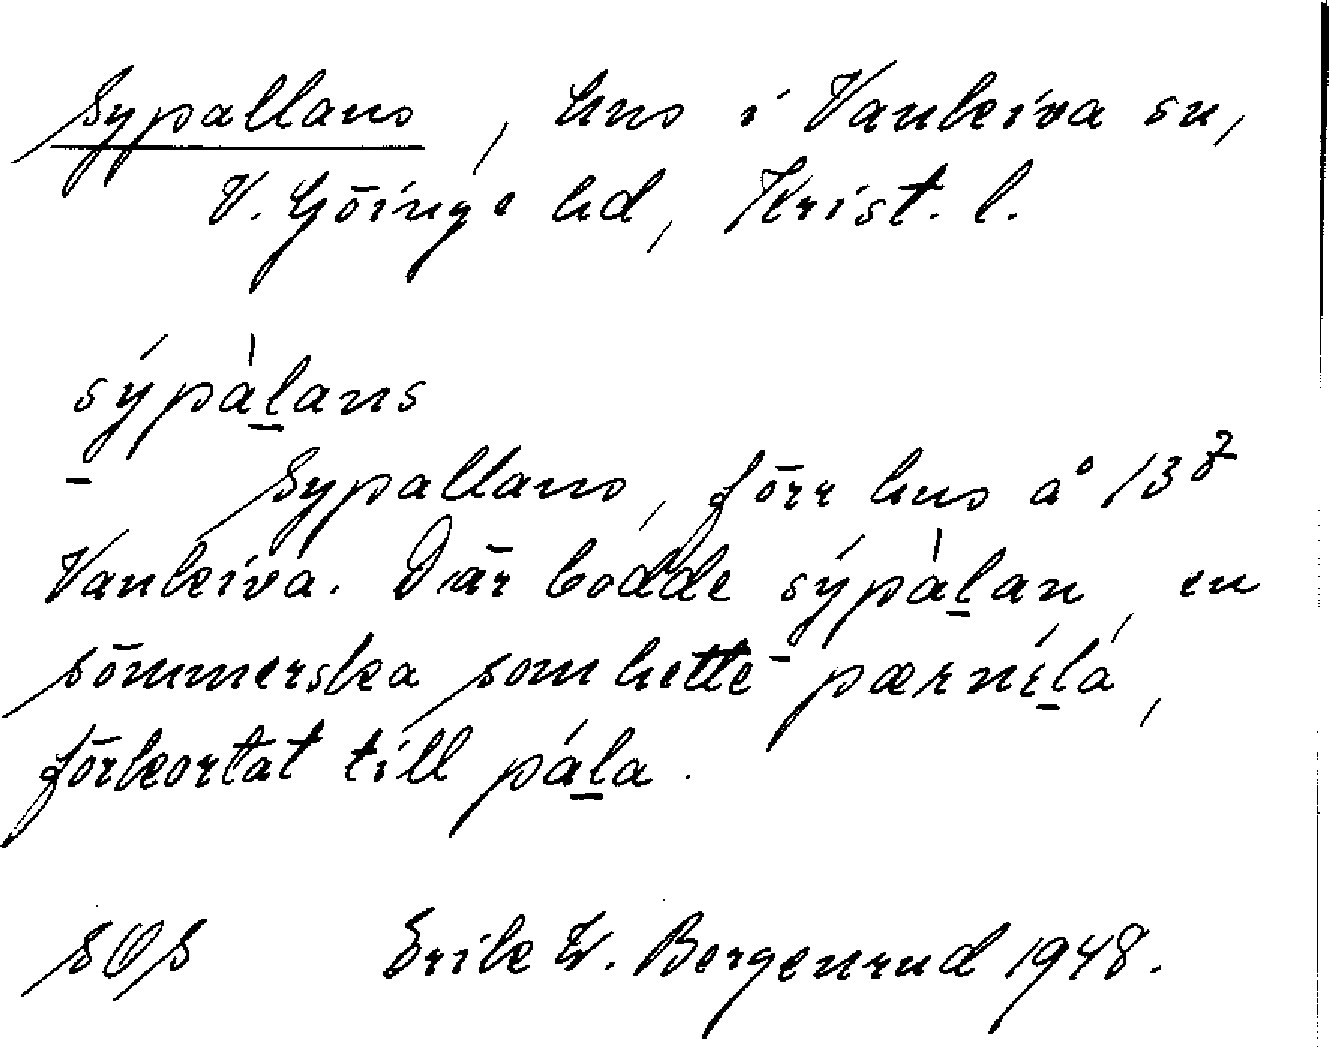 Sypallans, hus i Vankiva sn,
V. Göinge hd, Krist. l.
sýpàlans
Sypallans, förr hus å 13⁷
Vankiva. Där bodde sýpàlan, en
sömmerska som hette pærníla,
förkortat till pála.
SOS Erik W. Bergenrud 1948.